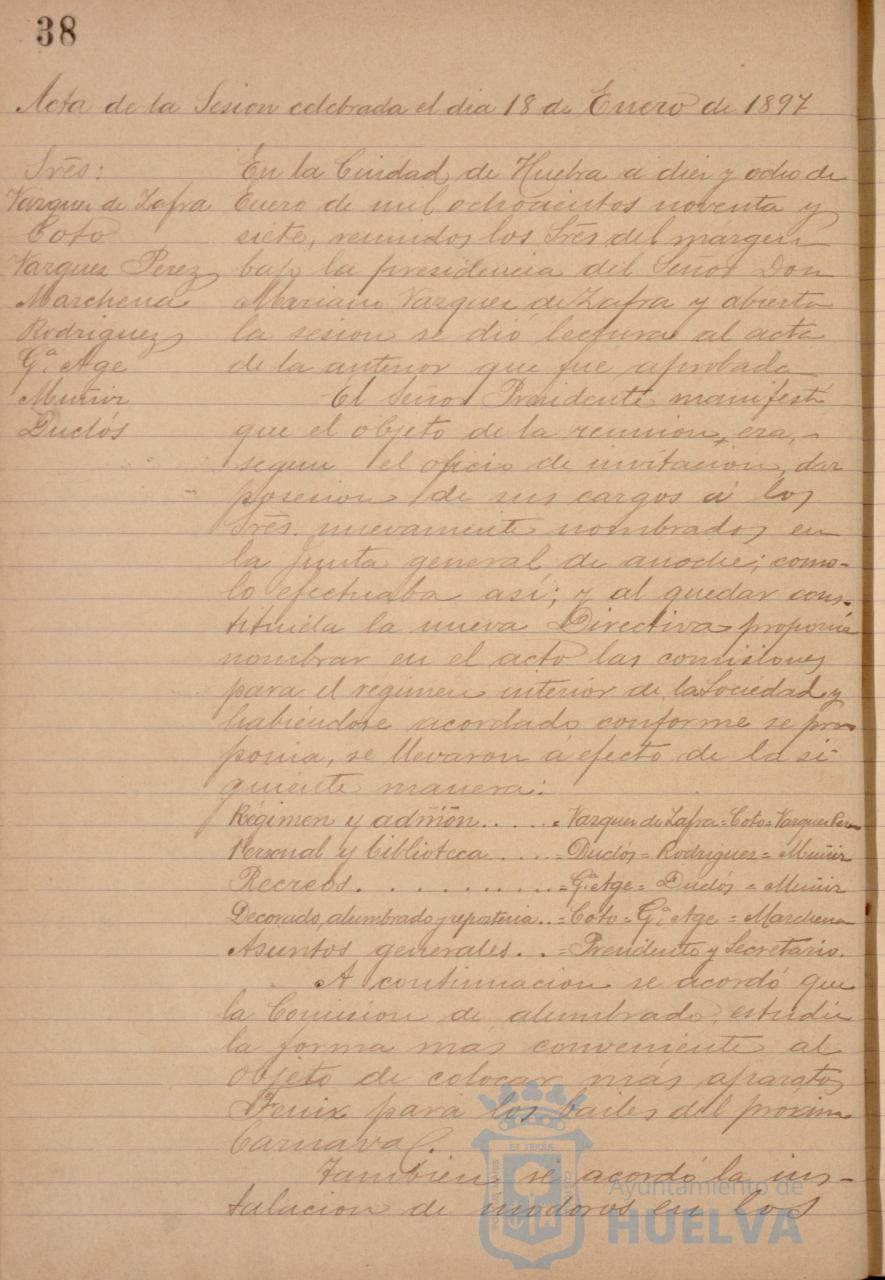 38
Acta de la Sesion celebrada el dia 18 de Enero de 1897
Srēs:
Vazquez de Zafra
Coto
Vazquez Perez
Marchena
Rodriguez
Gª. Age
Muñiz
Duclós
En la Ciudad de Huelva a diez y ocho de
Enero de mil ochocientos noventa y
siete, reunidos los Srēs del margen
bajo la presidencia del Señor Don
Mariano Vazquez de Zafra y abierta
la sesion se dió lectura al acta
de la anterior que fue aprobada
El Señor Presidente manifestó
que el objeto de la reunion, era,
segun el oficio de invitacion, dar
posesion de sus cargos á los
Srēs. nuevamente nombrados en
la Junta general de anoche; como
lo efectuaba así; y al quedar cons-
tituida la nueva Directiva proponia
nombrar en el acto las comisiones
para el regimen interior de la Sociedad y
habiendose acordado conforme se pro
ponia, se llevaron á efecto de la si-
guiente manera:
Régimen y admōn..... = Vazquez de Zafra = Coto = Vazquez Perez
Personal y biblioteca..... = Duclós = Rodriguez = Muñiz
Recreos........... = Gª. Age = Duclós = Muñiz
Decorado, alumbrado y reposteria.. = Coto = Gª. Age = Marchena
Asuntos generales... = Presidente y Secretario.
A continuacion se acordó que
la Comision de alumbrado, estudie
la forma más conveniente al
objeto de colocar más aparatos
Fenix para los bailes del proximo
Carnaval.
Tambien se acordó la ins-
talacion de inodoros en los
ET TERRA
Ayuntamiento de
HUELVA